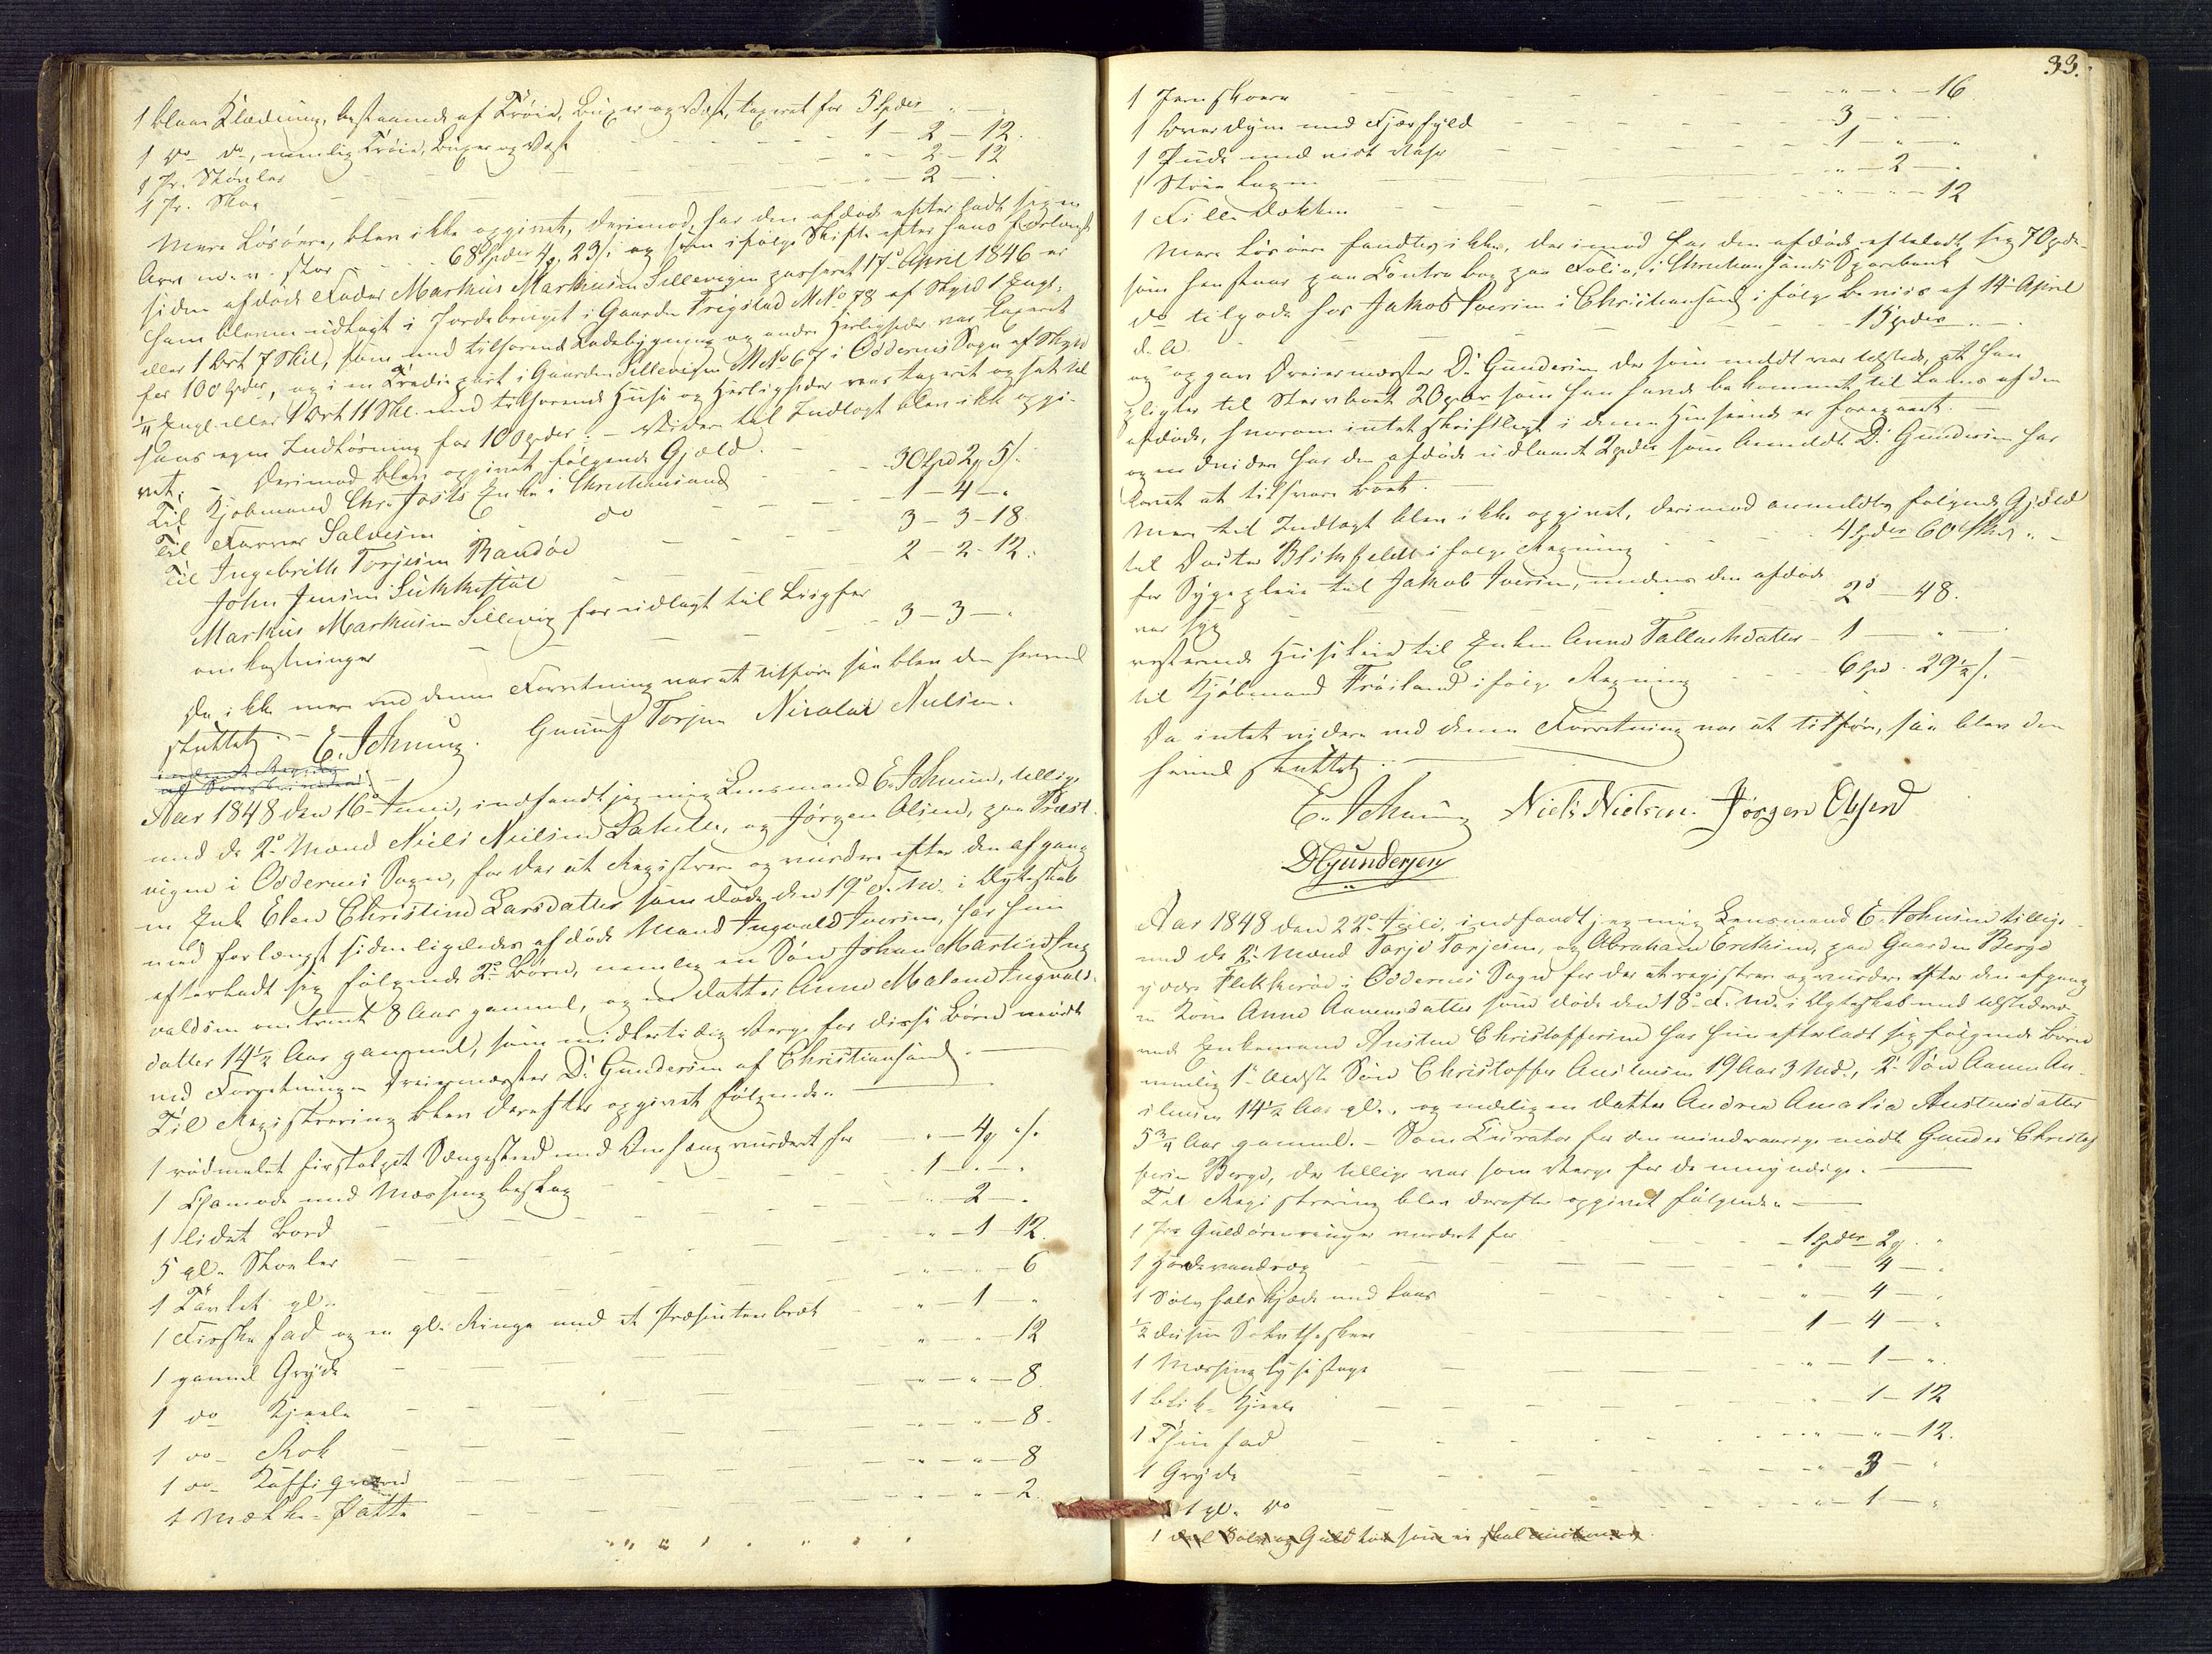 1 blaae Klædning, bestaaende af Trøie, Buxer og Vest, taxeret for 5 Spdr " — "
1 do do, nemlig Trøie, Buxer og Vest — 1 – 2 – 12.
1 Pr. Støvler — " – 2 – 12
1 Pr. Skoe — " – 2 – "
Mere Løsøere, blev ikke opgivet, derimod har den afdøde efterladt sig en
Arv m. v. stor 68 Spdr 4 ort 23 s. og som ifølge Skifte efter hans forlængst
siden afdøde Fader Markus Markusen Sillevigen passeret 17de April 1846 er
ham bleven udlagt i Jordebruget i Gaarden Frigstad M No 78 af Skyld 1 Engl.
eller 1 Ort 7 Skil, som med tilhørende Ladebygning og andre Herligheder var taxeret
for 100 Spdr, og i en Trediepart i Gaarden Sillevigen M No 67 i Oddernes Sogn af Skyld
1/4 Engl. eller 1 Ort 11 Sk. med tilhørende Huse og Herligheder var taxeret og sat til
hans egen Indførsning for 100 Spdr; – Videre til Indtægt blev ikke opgi-
vet; – Derimod blev opgivet følgende Gjæld.
Til Kjøbmand Chr. Josts Enke i Christiansand — 30 Spd 2 ort 5 s.
Til Farver Salvesen do — 1 – 4 – "
Til Ingebrith Torjesen Randøe — 3 – 3 – 18
John Jensen Sukkestøl — 2 – 2 – 12.
Markus Markusen Sillevig for udlagt til Liigfær
omkostninger — 3 – 3 – "
Da ikke mere ved denne Forretning var at tilføre saa blev den hermed
sluttet. – E. Johnsen. Gunuf Torjsen Nicolai Nielsen.
Aar 1848 den 16de Juni, indfandt jeg mig Lensmand E. Johnsen, tillige
med de 2de Mænd Niels Nielsen og Jørgen Olsen, paa Præst-
vigen i Oddernes Sogn, for der at Registrere og vurdere efter den afgang-
ne Enke Elen Christine Larsdatter som døde den 19de f. M. i Ægteskab
med forlængst siden ligeledes afdøde Mand Ingvald Iversen, har hun
efterladt sig følgende 2de Børn, nemlig en Søn Johan Martin Ing-
valdsen omtrent 8 Aar gammel, og en Datter Anne Malene Ingvalds-
datter 14½ Aar gammel, som midlertidig Værge for disse Børn mødte
ved Forretningen Dreiermester D. Gundersen af Christiansand. —
Til Registrering blev derefter opgivet følgende. —
1 rødmalet firstolpet Sengested med Omhæng vurderet for — " – 4 ort " s.
1 Chamode med Messing beslag — 1 – " – "
1 lidet Bord — " – 2 – "
5 gl. Stoeler — " – 1 – 12.
1 gl. — " – " – 6
1 Fiskefad og en gl. Ringe med et Præsenteerbret — " – 1 – "
1 gammel Gryde — " – " – 12
1 do Kjedel — " – " – 8.
1 do Rok — " – " – 8.
1 do Kaffeqværn — " – " – 8
1 Mælke-Bøtte — " – " – 2.
33.
1 — " – " – 16
1 Overdyne med Fjærfyld — 3 – " – "
1 Pude med — 1 – " – "
1 Strie Lagen — " – 2 – "
1 Fille Dækken — " – " – 12
Mere Løsøre fandtes ikke, derimod har den afdøde efterladt sig 70 Spdr
som henstaar paa Contra bog paa Folio, i Christiansands Sparebank
do tilgode hos Jakob Iversen i Christiansand ifølge Beviis af 14de April
d. A. — 15 Spdr " – "
og opgav Dreiermester D. Gundersen der som meldt var tilstede, at han
pligter til Stervboet 20 Spdr som han havde bekommet til Laans af den
afdøde, hvorom intet skriftligt i denne Henseende er foregaaet. —
og endvidere har den afdøde udlaant 2 Spdr som anmeldte D. Gundersen har
lovet at tilsvare Boet. —
Mere til Indtægt blev ikke opgivet, derimod anmeldtes følgende Gjæld
til Doctor Blikfeldt ifølge Regning — 4 Spdr 60 Skil. "
for Sygepleie til Jakob Iversen, medens den afdøde
var syg — 2 – 48.
resterende Huusleie til Enken Anne Tallachsdatter — 1 — " —
til Kjøbmand Frøiland ifølge Regning — 6 Spd. 29½ s.
Da intet videre ved denne Forretning var at tilføre, saa blev den
hermed sluttet. —
E. Johnsen Niels Nielsen. Jørgen Olsen
DGundersen
Aar 1848 den 22de Juli, indfandt jeg mig Lensmand E. Johnsen tillige
med de 2de Mænd Tarje Torjesen, og Abraham Erichsen, paa Gaarden Bergø
Flekkerøe i Oddernes Sogn for der at registrere og vurdere efter den afgang
ne Kone Anne Aanensdatter som døde den 18de f. M. i Ægteskab med tilstedevæ-
rende Enkemand Austen Christoffersen har hun efterladt sig følgende Børn
nemlig 1ste ældste Søn Christoffer Austensen 19 Aar 3 Md., 2de Søn Aanen Au-
stensen 14½ Aar gl., og endelig en Datter Andrea Amalia Austensdatter
5¾ Aar gammel. – Som Curator for den mindreaarige mødte Gunder Christof
fersen Bergø, der tillige var som Værge for de umyndige. —
Til Registrering blev derefter opgivet følgende. —
1 Par Guldørenringe vurderet for — 1 Spdr 2 ort "
1 Hovedevandsæg — " – 4 – "
1 Sølv halskjæde med Laas — " – 4 – "
½ dusin Sølvtheskeer — 1 – 4 – "
1 Messing lysestage — " – 1 – "
1 Blik-Kjedel — " – 1 – 12
1 Thinfad — " – " – 12.
1 Gryde — " – 3 – "
1 gl. do — " – 1 – "